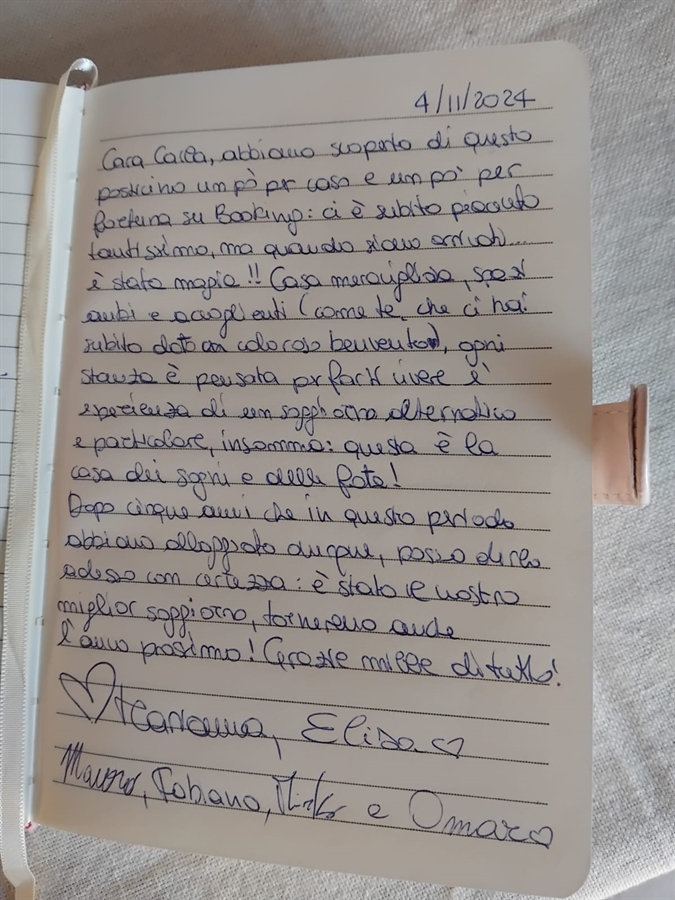 4/11/2024
Cara Carla, abbiamo scoperto di questo
posticino un pò per caso e un po' per
fortuna su Booking: ci è subito piaciuto
tantissimo, ma quando siamo arrivati...
è stata magia!! Casa meravigliosa, spazi
ambi e accoglienti (come te, che ci hai
subito dato un caloroso benvenuto), ogni
stanza è pensata per farti vivere l'
esperienza di un soggiorno alternativo
e particolare, insomma: questa è la
casa dei sogni e delle fate!
Dopo cinque anni che in questo periodo
abbiamo alloggiato ovunque, posso dirlo
adesso con certezza: è stato il nostro
miglior soggiorno, torneremo anche
l'anno prossimo! Grazie mille di tutto!
Elisa
Fabiano, e Omar